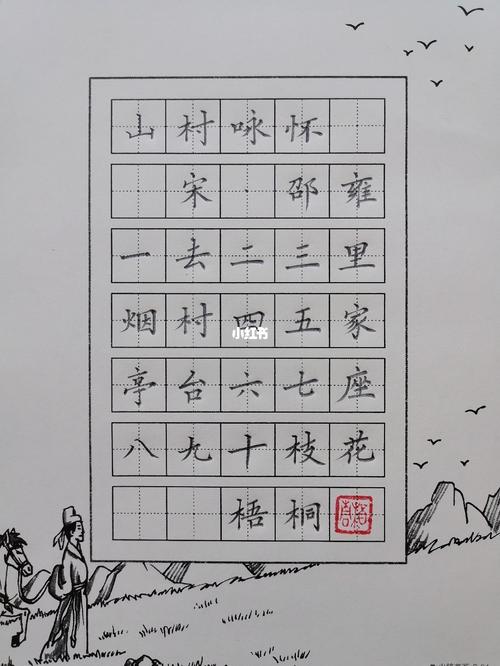 山村咏怀
宋·邵雍
一去二三里
烟村四五家
小红书
亭台六七座
八九十枝花
梧桐